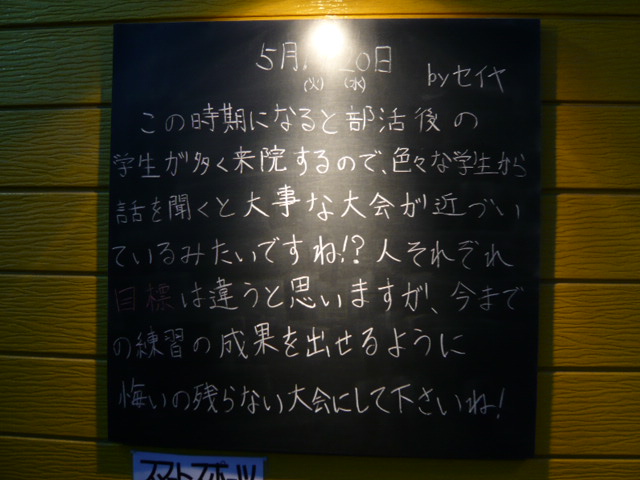 5月 20日
(火) (水) byセイヤ
この時期になると部活後の
学生が多く来院するので、色々な学生から
話を聞くと大事な大会が近づい
ているみたいですね!?人それぞれ
目標は違うと思いますが、今まで
の練習の成果を出せるように
悔いの残らない大会にして下さいね!